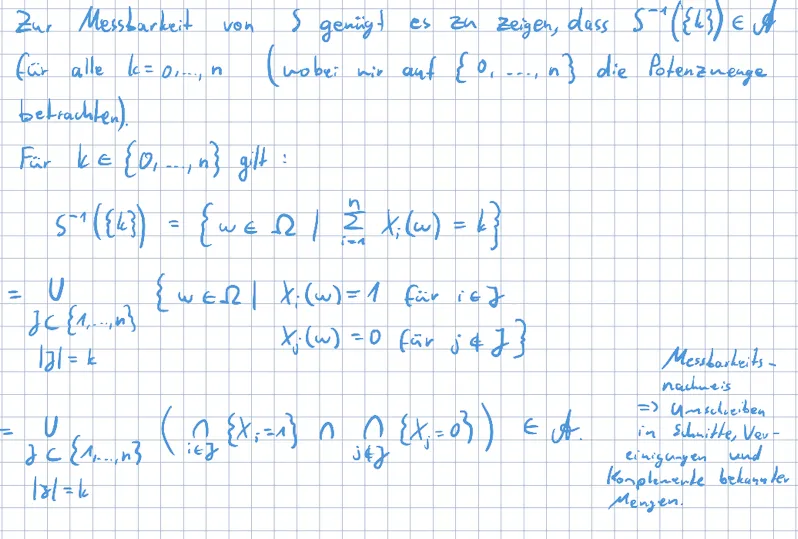 Zur Messbarkeit von S genügt es zu zeigen, dass S⁻¹({k}) ∈ 𝒜
für alle k = 0,...,n (wobei wir auf {0, ..., n} die Potenzmenge
betrachten).
Für k ∈ {0, ..., n} gilt :
S⁻¹({k}) = { ω ∈ Ω | ∑_{i=1}^{n} X_i(ω) = k}
= ⋃_{J ⊂ {1,...,n}, |J| = k} { ω ∈ Ω | X_i(ω) = 1 für i ∈ J
X_j(ω) = 0 für j ∉ J }
= ⋃_{J ⊂ {1,...,n}, |J| = k} ( ⋂_{i∈J} {X_i = 1} ∩ ⋂_{j∉J} {X_j = 0} ) ∈ 𝒜.
Messbarkeits-
nachweis
=> Umschreiben
in Schnitte, Ver-
einigungen und
Komplemente bekannter
Mengen.